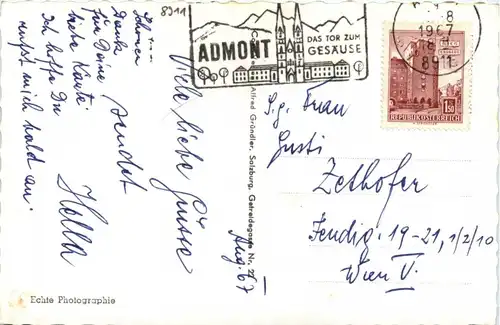 8911
Schönen
Dank
für Deine
liebe Karte.
Ich hoffe Du
rufst mich bald an.
Viele liebe Grüsse
sendet
Hella
Aug. 67
Echte Photographie
Alfred Gründler, Salzburg, Getreidegasse Nr.
ADMONT
DAS TOR ZUM
GESÄUSE
8
1967
18
8911
1.50
REPUBLIK ÖSTERREICH
S.g. Frau
Gusti
Zethofer
Fendig. 19-21, 1/2/10
Wien V.